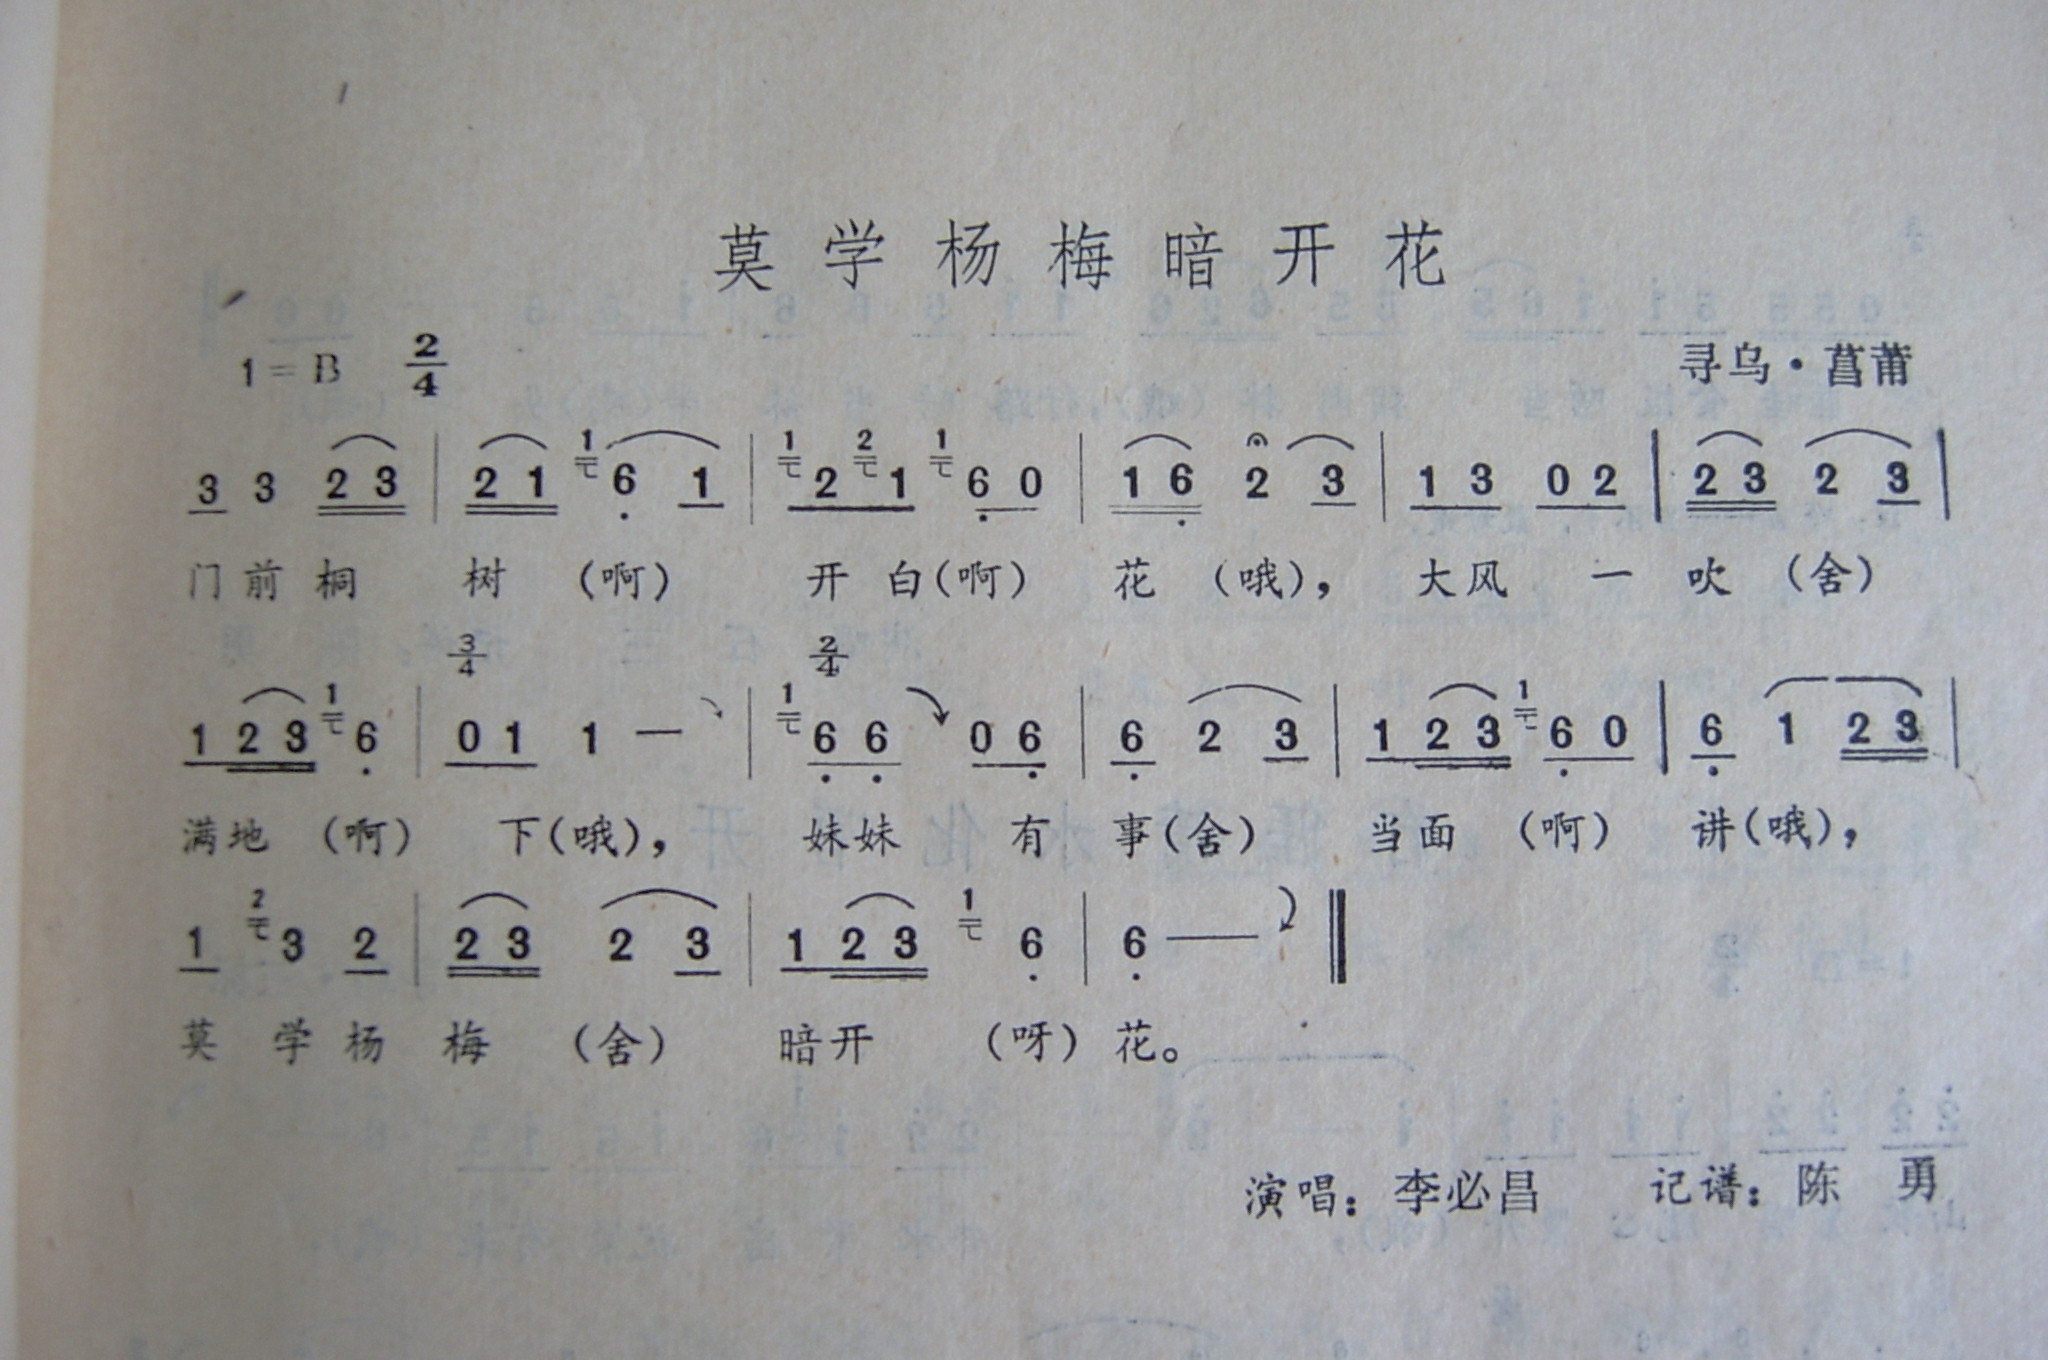 莫学杨梅暗开花
1=B 2/4
寻乌·菖莆
3 3 2 3 | 2 1 1 6 1 | 1 2 2 1 1 6 0 | 1 6 2 3 | 1 3 0 2 | 2 3 2 3 |
门前桐 树 (啊) 开 白(啊) 花 (哦), 大风 一 吹 (舍)
3/4 2/4
1 2 3 1 6 | 0 1 1 — | 1 6 6 0 6 | 6 2 3 | 1 2 3 1 6 0 | 6 1 2 3 |
满地 (啊) 下(哦), 妹妹 有 事(舍) 当面 (啊) 讲(哦),
1 2 3 2 | 2 3 2 3 | 1 2 3 1 6 | 6 — ‖
莫 学 杨 梅 (舍) 暗开 (呀) 花。
演唱:李必昌 记谱:陈 勇